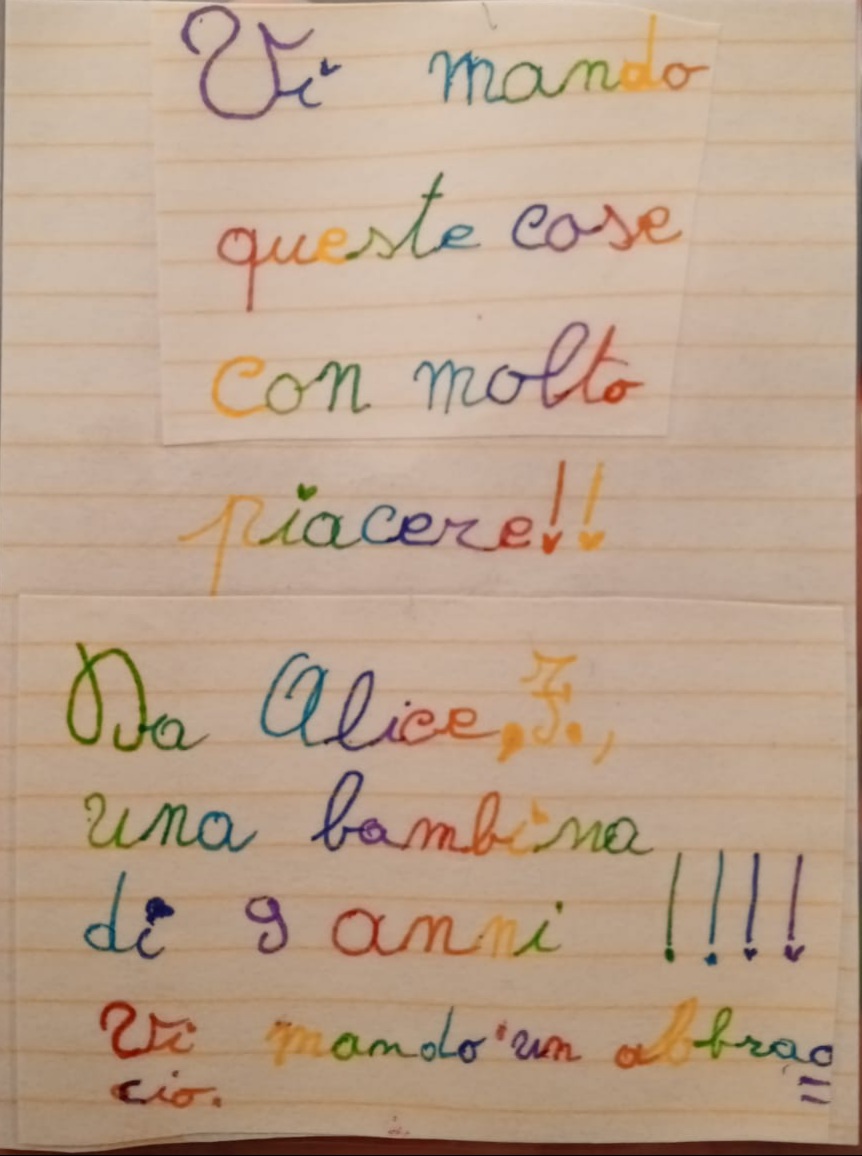 Vi mando
queste cose
con molto
piacere!!
Da Alice, F.,
una bambina
di 9 anni !!!!
Vi mando un abbrac=
cio.